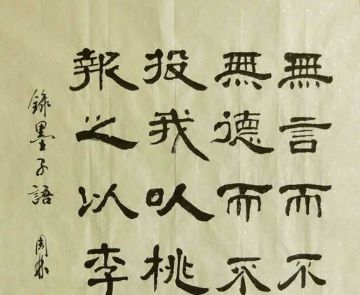 無言而不
無德而不
投我以桃
報之以李
錄墨子語 周